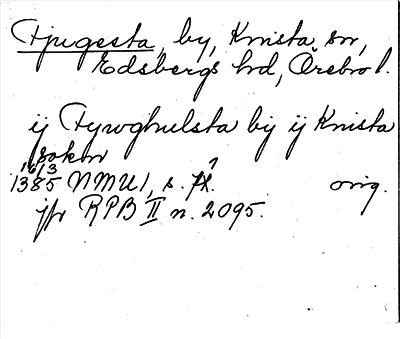 Fjugesta, by, Knista sn,
Edsbergs hd, Örebro l.
ij Fywghulsta by ij Knista
sokn
16/3
1385 NMU 1, s. 7? orig.
jfr RPB II n. 2095.